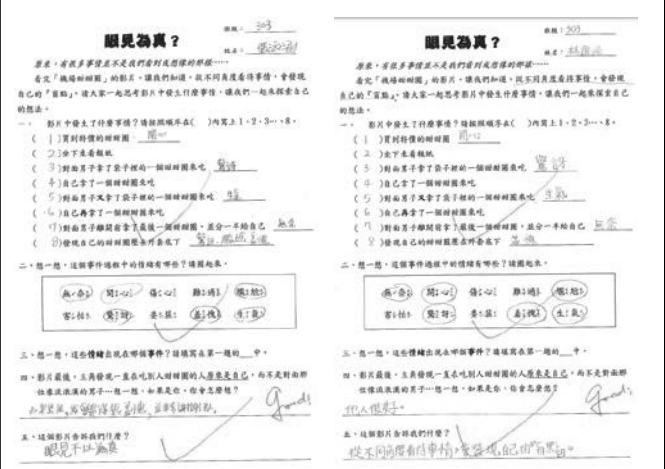 眼見為真？
班級：303
姓名：
原來，有很多事情並不是我們看到或想像的那樣……
看完「機場甜甜圈」的影片，讓我們知道，從不同角度看待事情，會發現
自己的「盲點」，請大家一起思考影片中發生什麼事情，讓我們一起來探索自己
的想法。
一、 影片中發生了什麼事情？請按照順序在( )內寫上1、2、3…、8。
( 1 )買到特價的甜甜圈 開心
( 2 )坐下來看報紙
( 3 )對面男子拿了袋子裡的一個甜甜圈來吃 驚訝
( 4 )自己拿了一個甜甜圈來吃
( 5 )對面男子又拿了袋子裡的一個甜甜圈來吃 生氣
( 6 )自己再拿了一個甜甜圈來吃
( 7 )對面男子離開前拿了最後一個甜甜圈，並分一半給自己 無奈
( 8 )發現自己的甜甜圈壓在外套底下 驚訝、尷尬、羞愧
二、想一想，這個事件過程中的情緒有哪些？請圈起來。
無奈 開心 傷心 難過 尷尬
害怕 驚訝 委屈 羞愧 生氣
三、想一想，這些情緒出現在哪個事件？請填寫在第一題的__中。
四、影片最後，主角發現一直在吃別人甜甜圈的人原來是自己，而不是對面那
位像流浪漢的男子…想一想，如果是你，你會怎麼想？
Good!
五、這個影片告訴我們什麼？
眼見不以為真
眼見為真？
班級：303
姓名：林
原來，有很多事情並不是我們看到或想像的那樣……
看完「機場甜甜圈」的影片，讓我們知道，從不同角度看待事情，會發現
自己的「盲點」，請大家一起思考影片中發生什麼事情，讓我們一起來探索自己
的想法。
一、 影片中發生了什麼事情？請按照順序在( )內寫上1、2、3…、8。
( 1 )買到特價的甜甜圈 開心
( 2 )坐下來看報紙
( 3 )對面男子拿了袋子裡的一個甜甜圈來吃 驚訝
( 4 )自己拿了一個甜甜圈來吃
( 5 )對面男子又拿了袋子裡的一個甜甜圈來吃 生氣
( 6 )自己再拿了一個甜甜圈來吃
( 7 )對面男子離開前拿了最後一個甜甜圈，並分一半給自己 無奈
( 8 )發現自己的甜甜圈壓在外套底下 羞愧
二、想一想，這個事件過程中的情緒有哪些？請圈起來。
無奈 開心 傷心 難過 尷尬
害怕 驚訝 委屈 羞愧 生氣
三、想一想，這些情緒出現在哪個事件？請填寫在第一題的__中。
四、影片最後，主角發現一直在吃別人甜甜圈的人原來是自己，而不是對面那
位像流浪漢的男子…想一想，如果是你，你會怎麼想？
他人很好。
Good!
五、這個影片告訴我們什麼？
從不同角度看待事情，會發現自己的"盲點"。